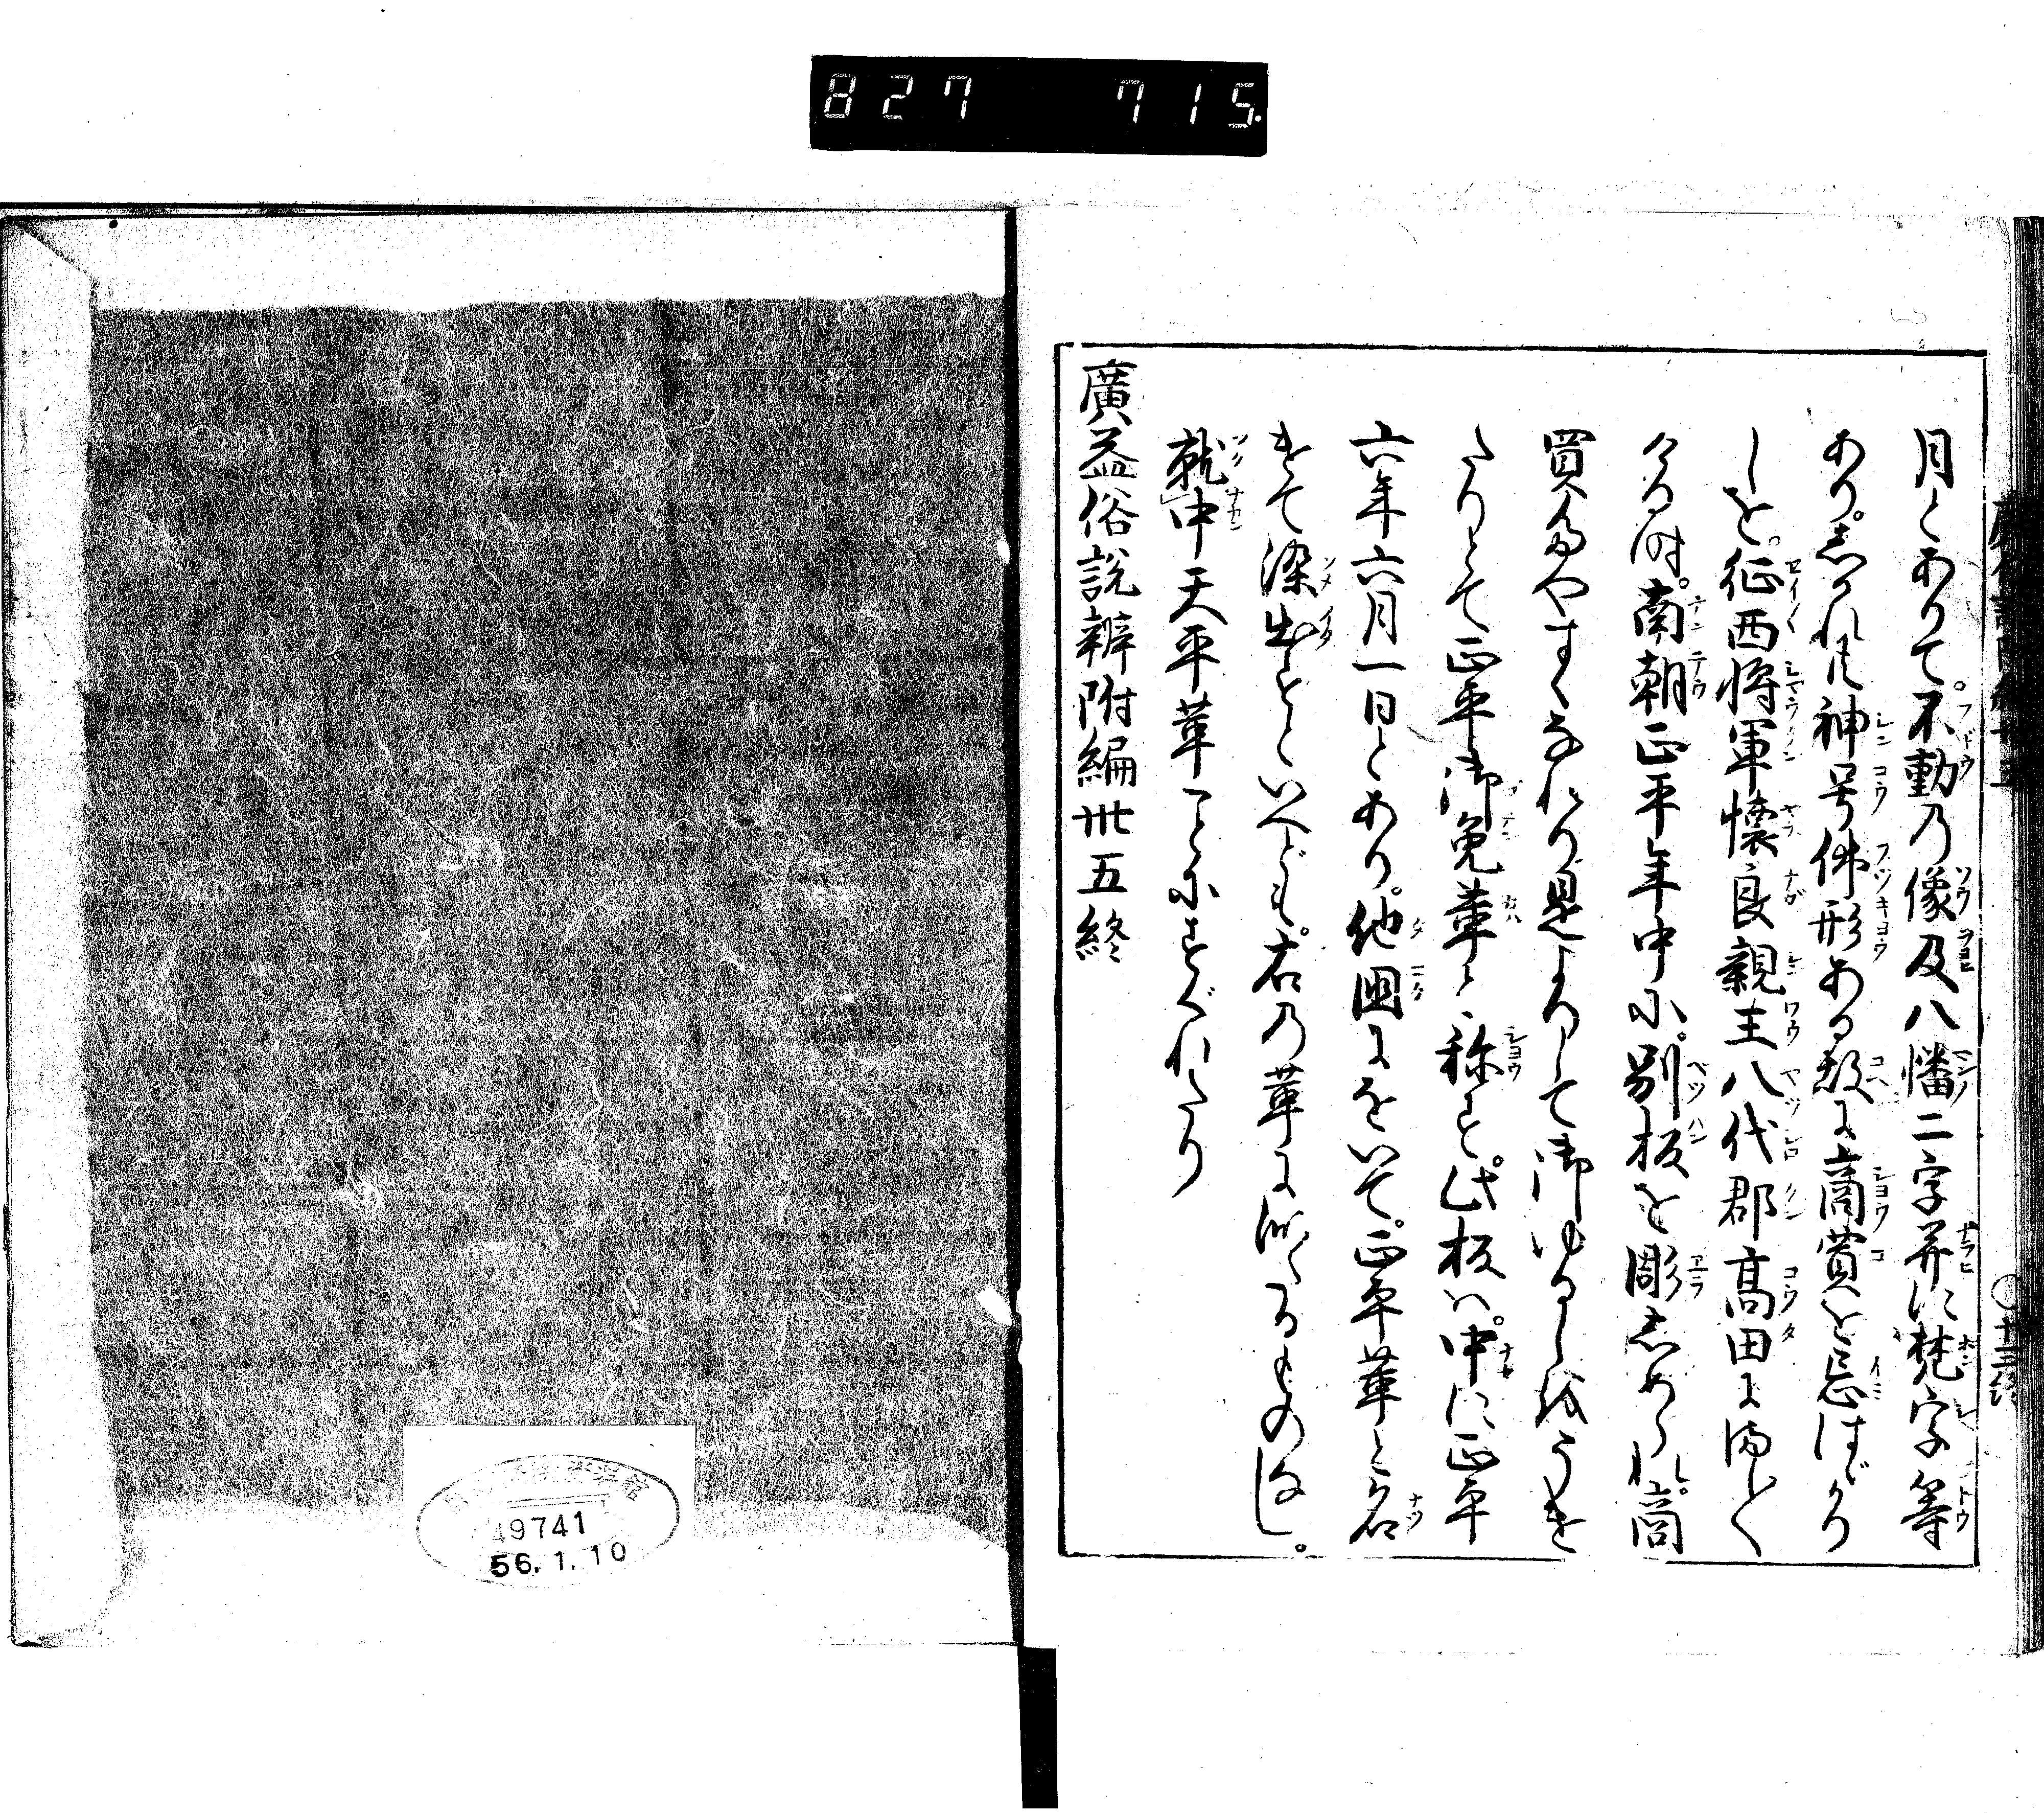 827 715.
月とありて。不動乃像及八幡二字并に梵字等
あり。しかれ共神号佛形ある故に商賣を忌はゞかり
しを。征西将軍懐良親王八代郡髙田にまし〱
ける時。南朝正平年中に。別板を彫しめられ。商
買たやすくなれり是よりして御ゆるしをうけ
たりとて正平御免革と称す。此板は。中に正平
六年六月一日とあり。他國にをいて。正平革と名
けて染出すといへども。右乃革に似たるものなし。
就中天平革ことにすぐれたり
廣益俗説辨附編卅五終
49741
56.1.10